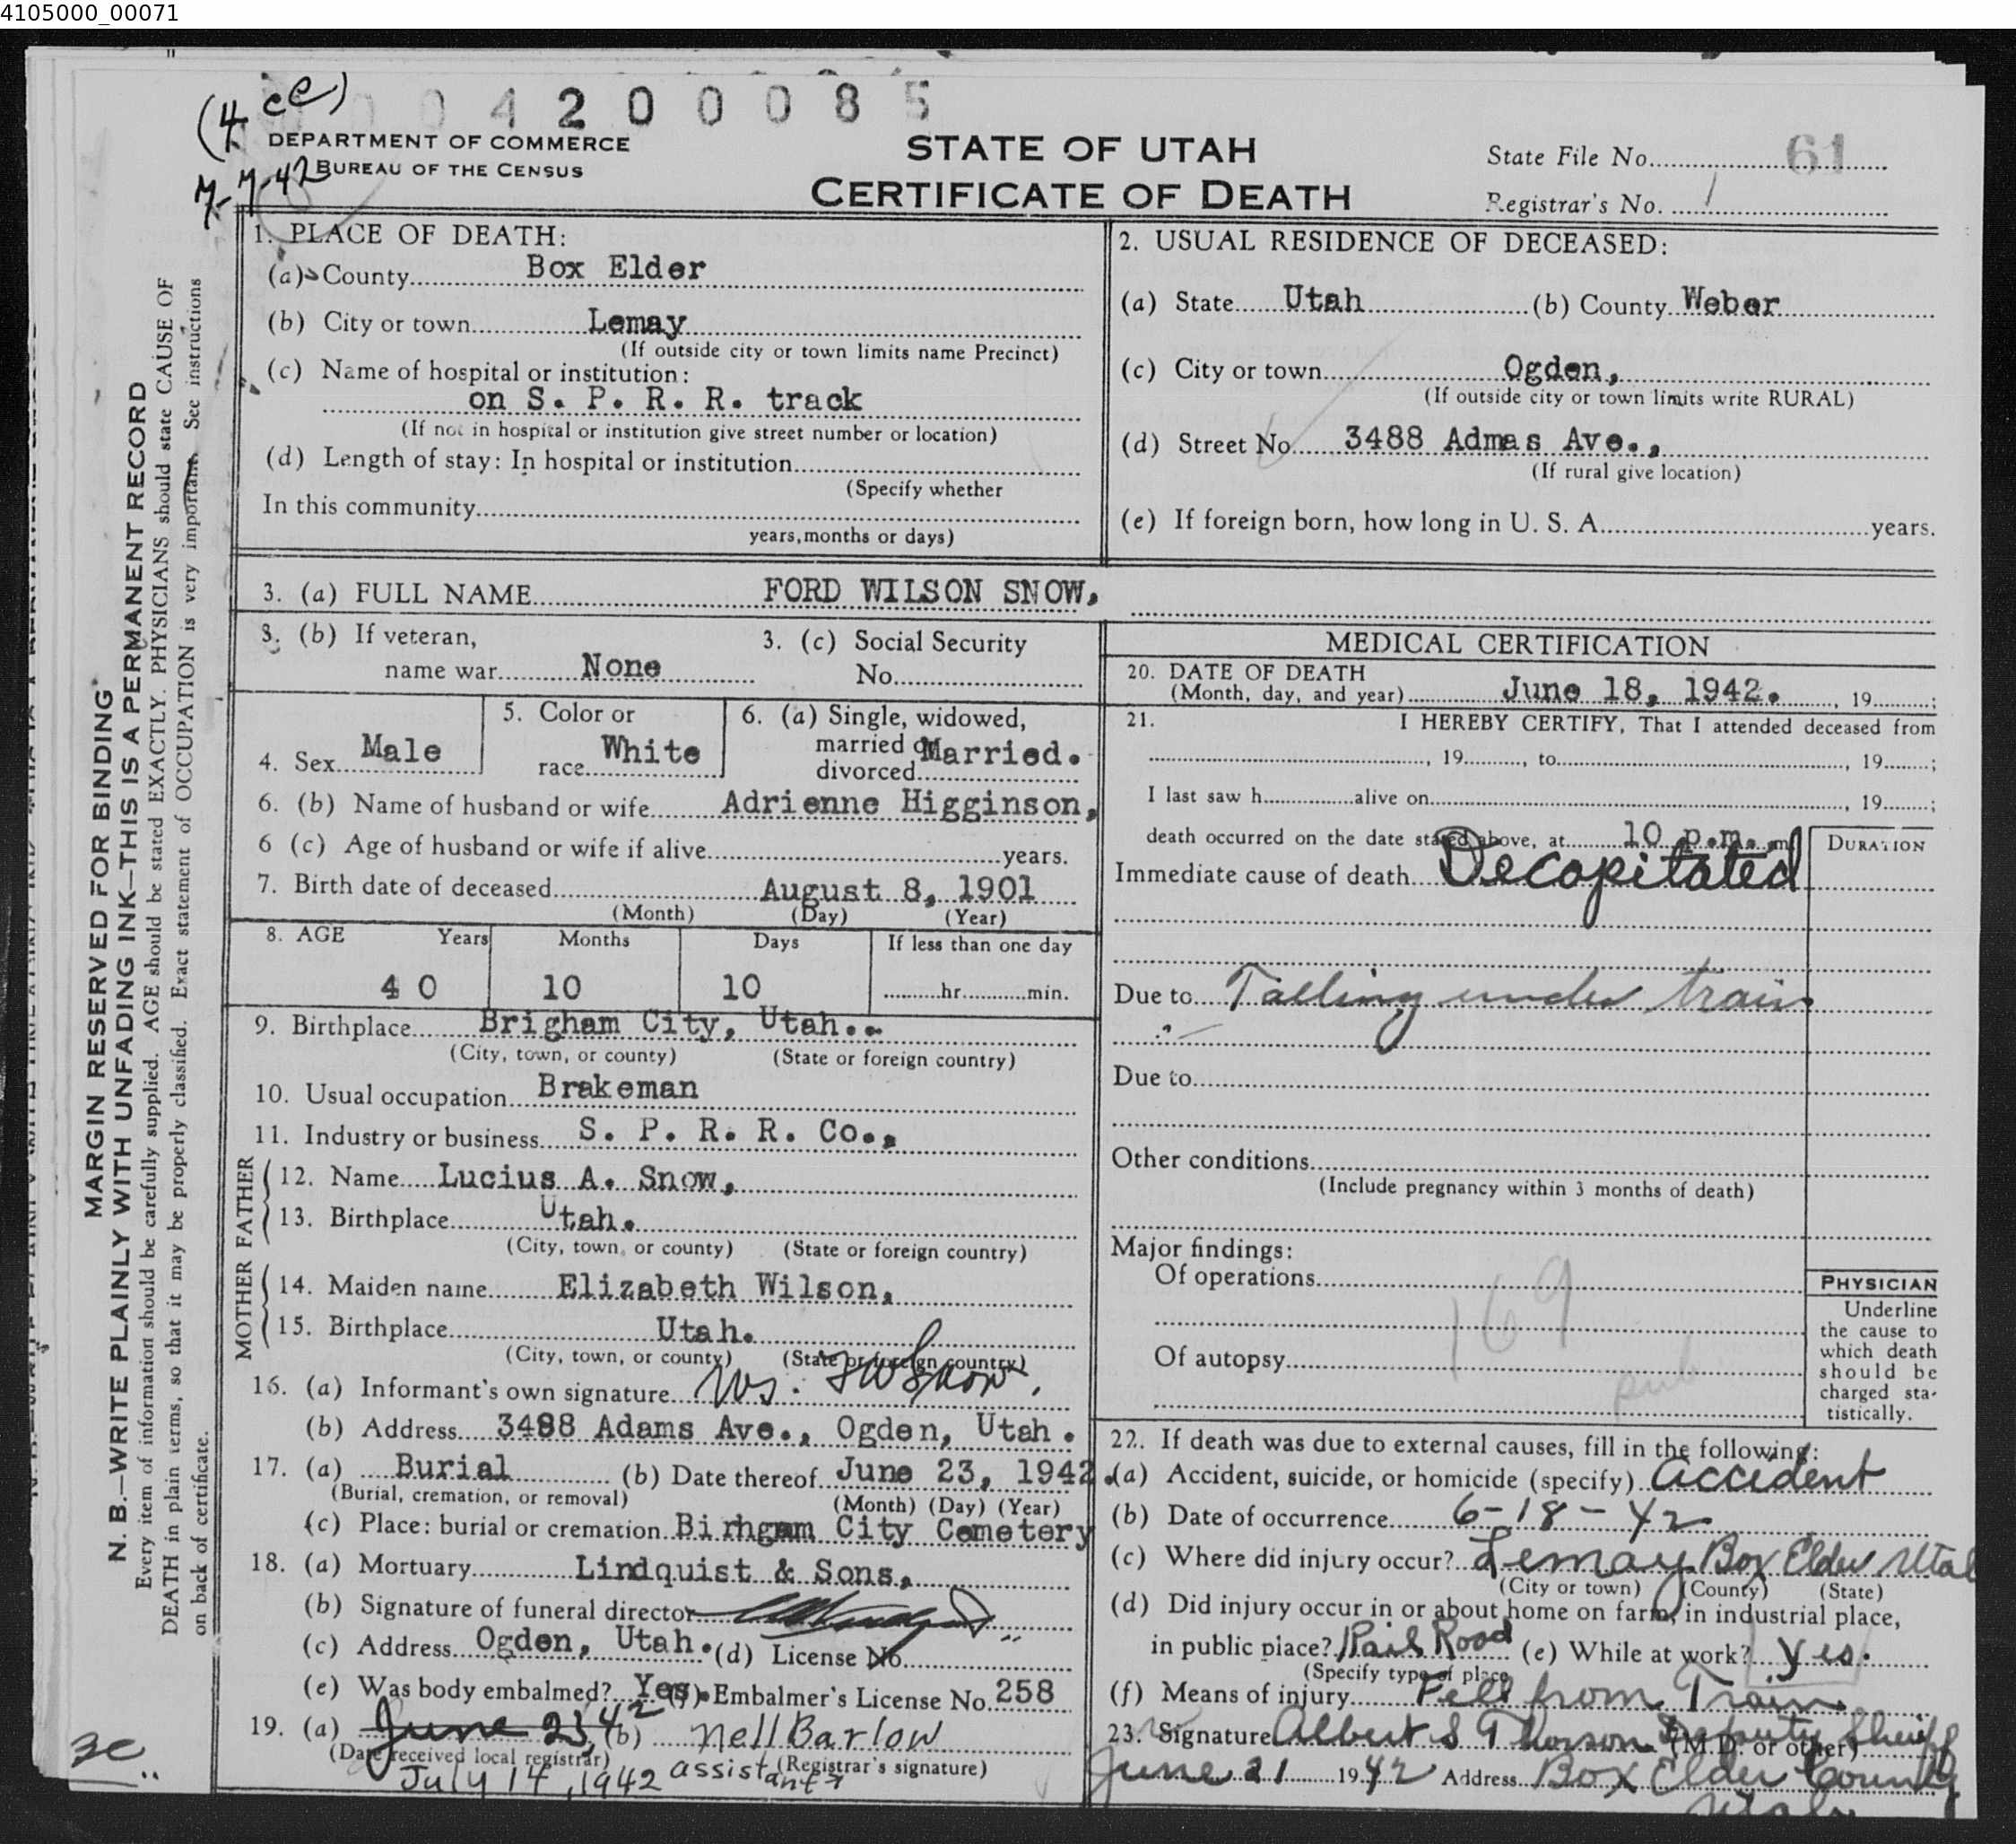 4105000_00071
(4 cc)
4 2 0 0 0 8 5
DEPARTMENT OF COMMERCE
BUREAU OF THE CENSUS
7-7-42
STATE OF UTAH
CERTIFICATE OF DEATH
State File No. 61
Registrar's No. 1
MARGIN RESERVED FOR BINDING
N. B.—WRITE PLAINLY WITH UNFADING INK—THIS IS A PERMANENT RECORD
Every item of information should be carefully supplied. AGE should be stated EXACTLY. PHYSICIANS should state CAUSE OF
DEATH in plain terms, so that it may be properly classified. Exact statement of OCCUPATION is very important. See instructions
on back of certificate.
1. PLACE OF DEATH:
(a) County Box Elder
(b) City or town Lemay
(If outside city or town limits name Precinct)
(c) Name of hospital or institution:
on S. P. R. R. track
(If not in hospital or institution give street number or location)
(d) Length of stay: In hospital or institution
(Specify whether
In this community
years, months or days)
2. USUAL RESIDENCE OF DECEASED:
(a) State Utah (b) County Weber
(c) City or town Ogden,
(If outside city or town limits write RURAL)
(d) Street No. 3488 Admas Ave.,
(If rural give location)
(e) If foreign born, how long in U. S. A. years.
3. (a) FULL NAME FORD WILSON SNOW,
3. (b) If veteran,
name war None
3. (c) Social Security
No.
4. Sex Male
5. Color or
race White
6. (a) Single, widowed,
married or
divorced Married.
6. (b) Name of husband or wife Adrienne Higginson,
6 (c) Age of husband or wife if alive years.
7. Birth date of deceased August 8, 1901
(Month) (Day) (Year)
8. AGE Years Months Days If less than one day
40 10 10 hr. min.
9. Birthplace Brigham City, Utah..
(City, town, or county) (State or foreign country)
10. Usual occupation Brakeman
11. Industry or business S. P. R. R. Co.,
FATHER
12. Name Lucius A. Snow,
13. Birthplace Utah.
(City, town, or county) (State or foreign country)
MOTHER
14. Maiden name Elizabeth Wilson,
15. Birthplace Utah.
(City, town, or county) (State or foreign country)
16. (a) Informant's own signature Mrs. F W Snow.
(b) Address 3488 Adams Ave., Ogden, Utah.
17. (a) Burial (b) Date thereof June 23, 1942.
(Burial, cremation, or removal) (Month) (Day) (Year)
(c) Place: burial or cremation Birhgam City Cemetery
18. (a) Mortuary Lindquist & Sons,
(b) Signature of funeral director
(c) Address Ogden, Utah. (d) License No.
(e) Was body embalmed? Yes. (f) Embalmer's License No. 258
19. (a) June 23, 42 (b) Nell Barlow
(Date received local registrar) (Registrar's signature)
July 14, 1942 assistant
3c
MEDICAL CERTIFICATION
20. DATE OF DEATH
(Month, day, and year) June 18, 1942. , 19 ;
21. I HEREBY CERTIFY, That I attended deceased from
, 19 , to , 19 ;
I last saw h alive on , 19 ;
death occurred on the date stated above, at 10 p.m. m
DURATION
Immediate cause of death Decapitated
Due to Falling under train
Due to
Other conditions
(Include pregnancy within 3 months of death)
Major findings:
Of operations
169
Of autopsy
pub
PHYSICIAN
Underline
the cause to
which death
should be
charged sta-
tistically.
22. If death was due to external causes, fill in the following:
(a) Accident, suicide, or homicide (specify) Accident
(b) Date of occurrence 6-18-42
(c) Where did injury occur? Lemay Box Elder Utah
(City or town) (County) (State)
(d) Did injury occur in or about home on farm, in industrial place,
in public place? Rail Road (e) While at work? Yes.
(Specify type of place
(f) Means of injury Fell from Train
23. Signature Albert S Thorson Deputy Sheriff
(M.D. or other)
June 21 1942 Address Box Elder County
Utah